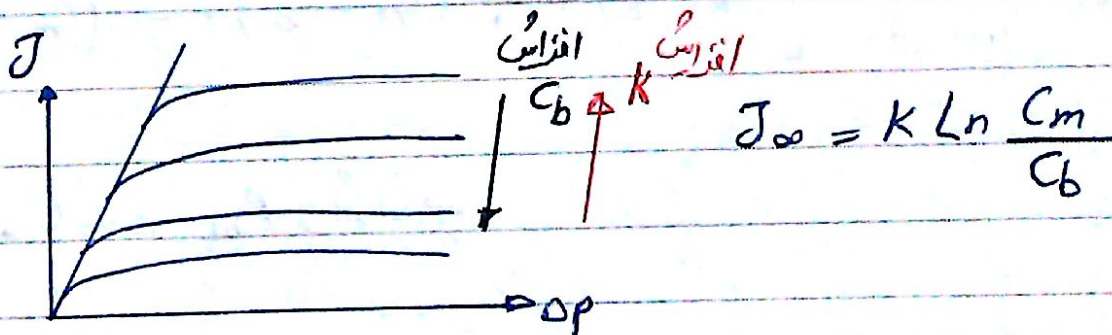 J
افزایش
C_b
افزایش
K
J∞ = K Ln C_m / C_b
Δp